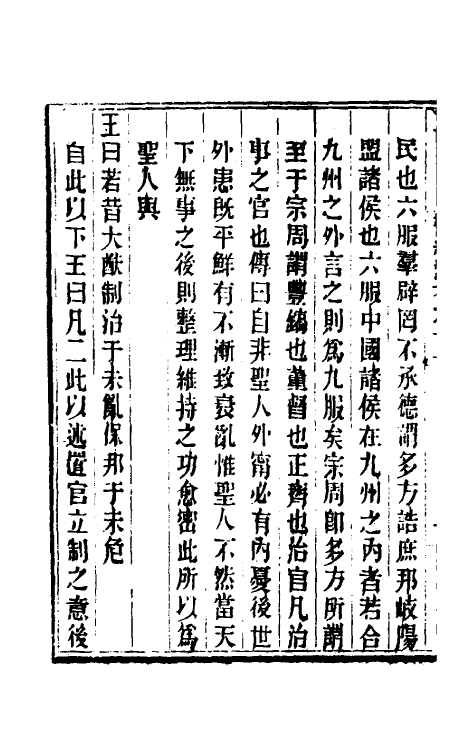 民也六服羣辟罔不承德謂多方誥庶邦岐陽
盟諸侯也六服中國諸侯在九州之內者若合
九州之外言之則爲九服矣宗周卽多方所謂
至于宗周謂豐鎬也董督也正齊也治官凡治
事之官也傳曰自非聖人外甯必有內憂後世
外患旣平鮮有不漸致衰亂惟聖人不然當天
下無事之後則整理維持之功愈密此所以爲
聖人與
王曰若昔大猷制治于未亂保邦于未危
自此以下王曰凡二此以述置官立制之意後